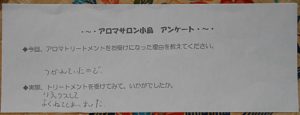 ・～・アロマサロン小晶 アンケート・～・
◆今回、アロマトリートメントをお受けになった理由を教えてください。
つかれていたので
◆実際、トリートメントを受けてみて、いかがでしたか。
リラックスして
よくねてしまいました